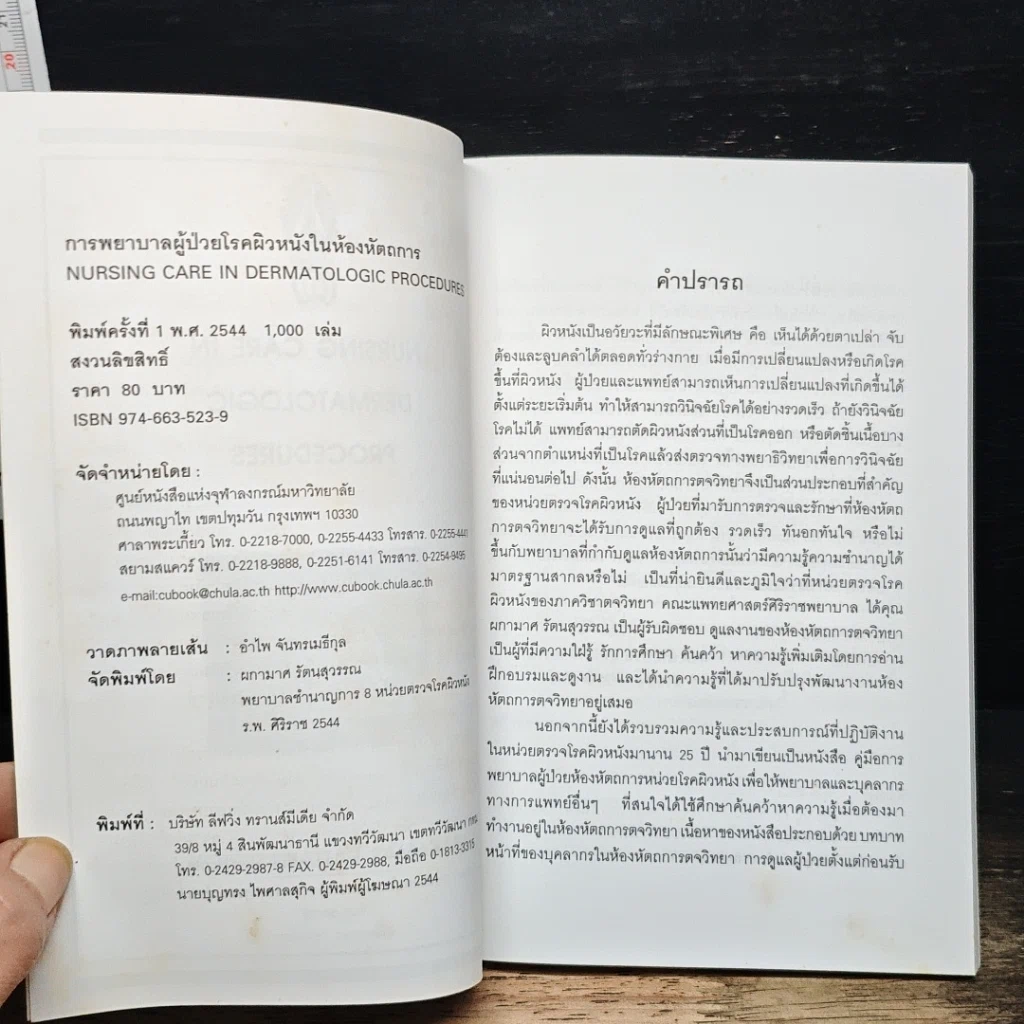 การพยาบาลผู้ป่วยโรคผิวหนังในห้องหัตถการ
NURSING CARE IN DERMATOLOGIC PROCEDURES
พิมพ์ครั้งที่ 1 พ.ศ. 2544 1,000 เล่ม
สงวนลิขสิทธิ์
ราคา 80 บาท
ISBN 974-663-523-9
จัดจำหน่ายโดย :
ศูนย์หนังสือแห่งจุฬาลงกรณ์มหาวิทยาลัย
ถนนพญาไท เขตปทุมวัน กรุงเทพฯ 10330
ศาลาพระเกี้ยว โทร. 0-2218-7000, 0-2255-4433 โทรสาร.
สยามสแควร์ โทร. 0-2218-9888, 0-2251-6141 โทรสาร. 0-2254-9495
e-mail:cubook@chula.ac.th http://www.cubook.chula.ac.th
วาดภาพลายเส้น : อำไพ จันทรเมธีกุล
จัดพิมพ์โดย : ผกามาศ รัตนสุวรรณ
พยาบาลชำนาญการ 8 หน่วยตรวจโรคผิวหนัง
ร.พ. ศิริราช 2544
พิมพ์ที่ : บริษัท ลีฟวิ่ง ทรานส์มีเดีย จำกัด
39/8 หมู่ 4 สินพัฒนาธานี แขวงทวีวัฒนา เขตทวีวัฒนา กทม.
โทร. 0-2429-2987-8 FAX. 0-2429-2988, มือถือ 0-1813-3315
นายบุญทรง ไพศาลสุกิจ ผู้พิมพ์ผู้โฆษณา 2544
คำปรารถ
ผิวหนังเป็นอวัยวะที่มีลักษณะพิเศษ คือ เห็นได้ด้วยตาเปล่า จับ
ต้องและลูบคลำได้ตลอดทั่วร่างกาย เมื่อมีการเปลี่ยนแปลงหรือเกิดโรค
ขึ้นที่ผิวหนัง ผู้ป่วยและแพทย์สามารถเห็นการเปลี่ยนแปลงที่เกิดขึ้นได้
ตั้งแต่ระยะเริ่มต้น ทำให้สามารถวินิจฉัยโรคได้อย่างรวดเร็ว ถ้ายังวินิจฉัย
โรคไม่ได้ แพทย์สามารถตัดผิวหนังส่วนที่เป็นโรคออก หรือตัดชิ้นเนื้อบาง
ส่วนจากตำแหน่งที่เป็นโรคแล้วส่งตรวจทางพยาธิวิทยาเพื่อการวินิจฉัย
ที่แน่นอนต่อไป ดังนั้น ห้องหัตถการตจวิทยาจึงเป็นส่วนประกอบที่สำคัญ
ของหน่วยตรวจโรคผิวหนัง ผู้ป่วยที่มารับการตรวจและรักษาที่ห้องหัตถ
การตจวิทยาจะได้รับการดูแลที่ถูกต้อง รวดเร็ว ทันอกทันใจ หรือไม่
ขึ้นกับพยาบาลที่กำกับดูแลห้องหัตถการนั้นว่ามีความรู้ความชำนาญได้
มาตรฐานสากลหรือไม่ เป็นที่น่ายินดีและภูมิใจว่าที่หน่วยตรวจโรค
ผิวหนังของภาควิชาตจวิทยา คณะแพทยศาสตร์ศิริราชพยาบาล ได้คุณ
ผกามาศ รัตนสุวรรณ เป็นผู้รับผิดชอบ ดูแลงานของห้องหัตถการตจวิทยา
เป็นผู้ที่มีความใฝ่รู้ รักการศึกษา ค้นคว้า หาความรู้เพิ่มเติมโดยการอ่าน
ฝึกอบรมและดูงาน และได้นำความรู้ที่ได้มาปรับปรุงพัฒนางานห้อง
หัตถการตจวิทยาอยู่เสมอ
นอกจากนี้ยังได้รวบรวมความรู้และประสบการณ์ที่ปฏิบัติงาน
ในหน่วยตรวจโรคผิวหนังมานาน 25 ปี นำมาเขียนเป็นหนังสือ คู่มือการ
พยาบาลผู้ป่วยห้องหัตถการหน่วยโรคผิวหนัง เพื่อให้พยาบาลและบุคลากร
ทางการแพทย์อื่นๆ ที่สนใจได้ใช้ศึกษาค้นคว้าหาความรู้เมื่อต้องมา
ทำงานอยู่ในห้องหัตถการตจวิทยา เนื้อหาของหนังสือประกอบด้วย บทบาท
หน้าที่ของบุคลากรในห้องหัตถการตจวิทยา การดูแลผู้ป่วยตั้งแต่ก่อนรับ